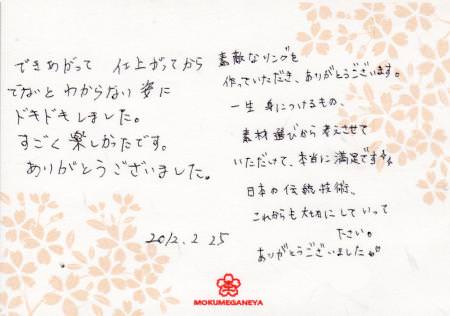 できあがって 仕上がってから
でないと わからない 姿に
ドキドキしました。
すごく楽しかったです。
ありがとうございました。
2012.2 25
素敵なリングを
作っていただき、ありがとうございます。
一生 身につけるもの、
素材選びから 考えさせて
いただけて、本当に 満足です
日本の 伝統技術、
これからも 大切にして いって
下さい。
ありがとうございました
MOKUMEGANEYA